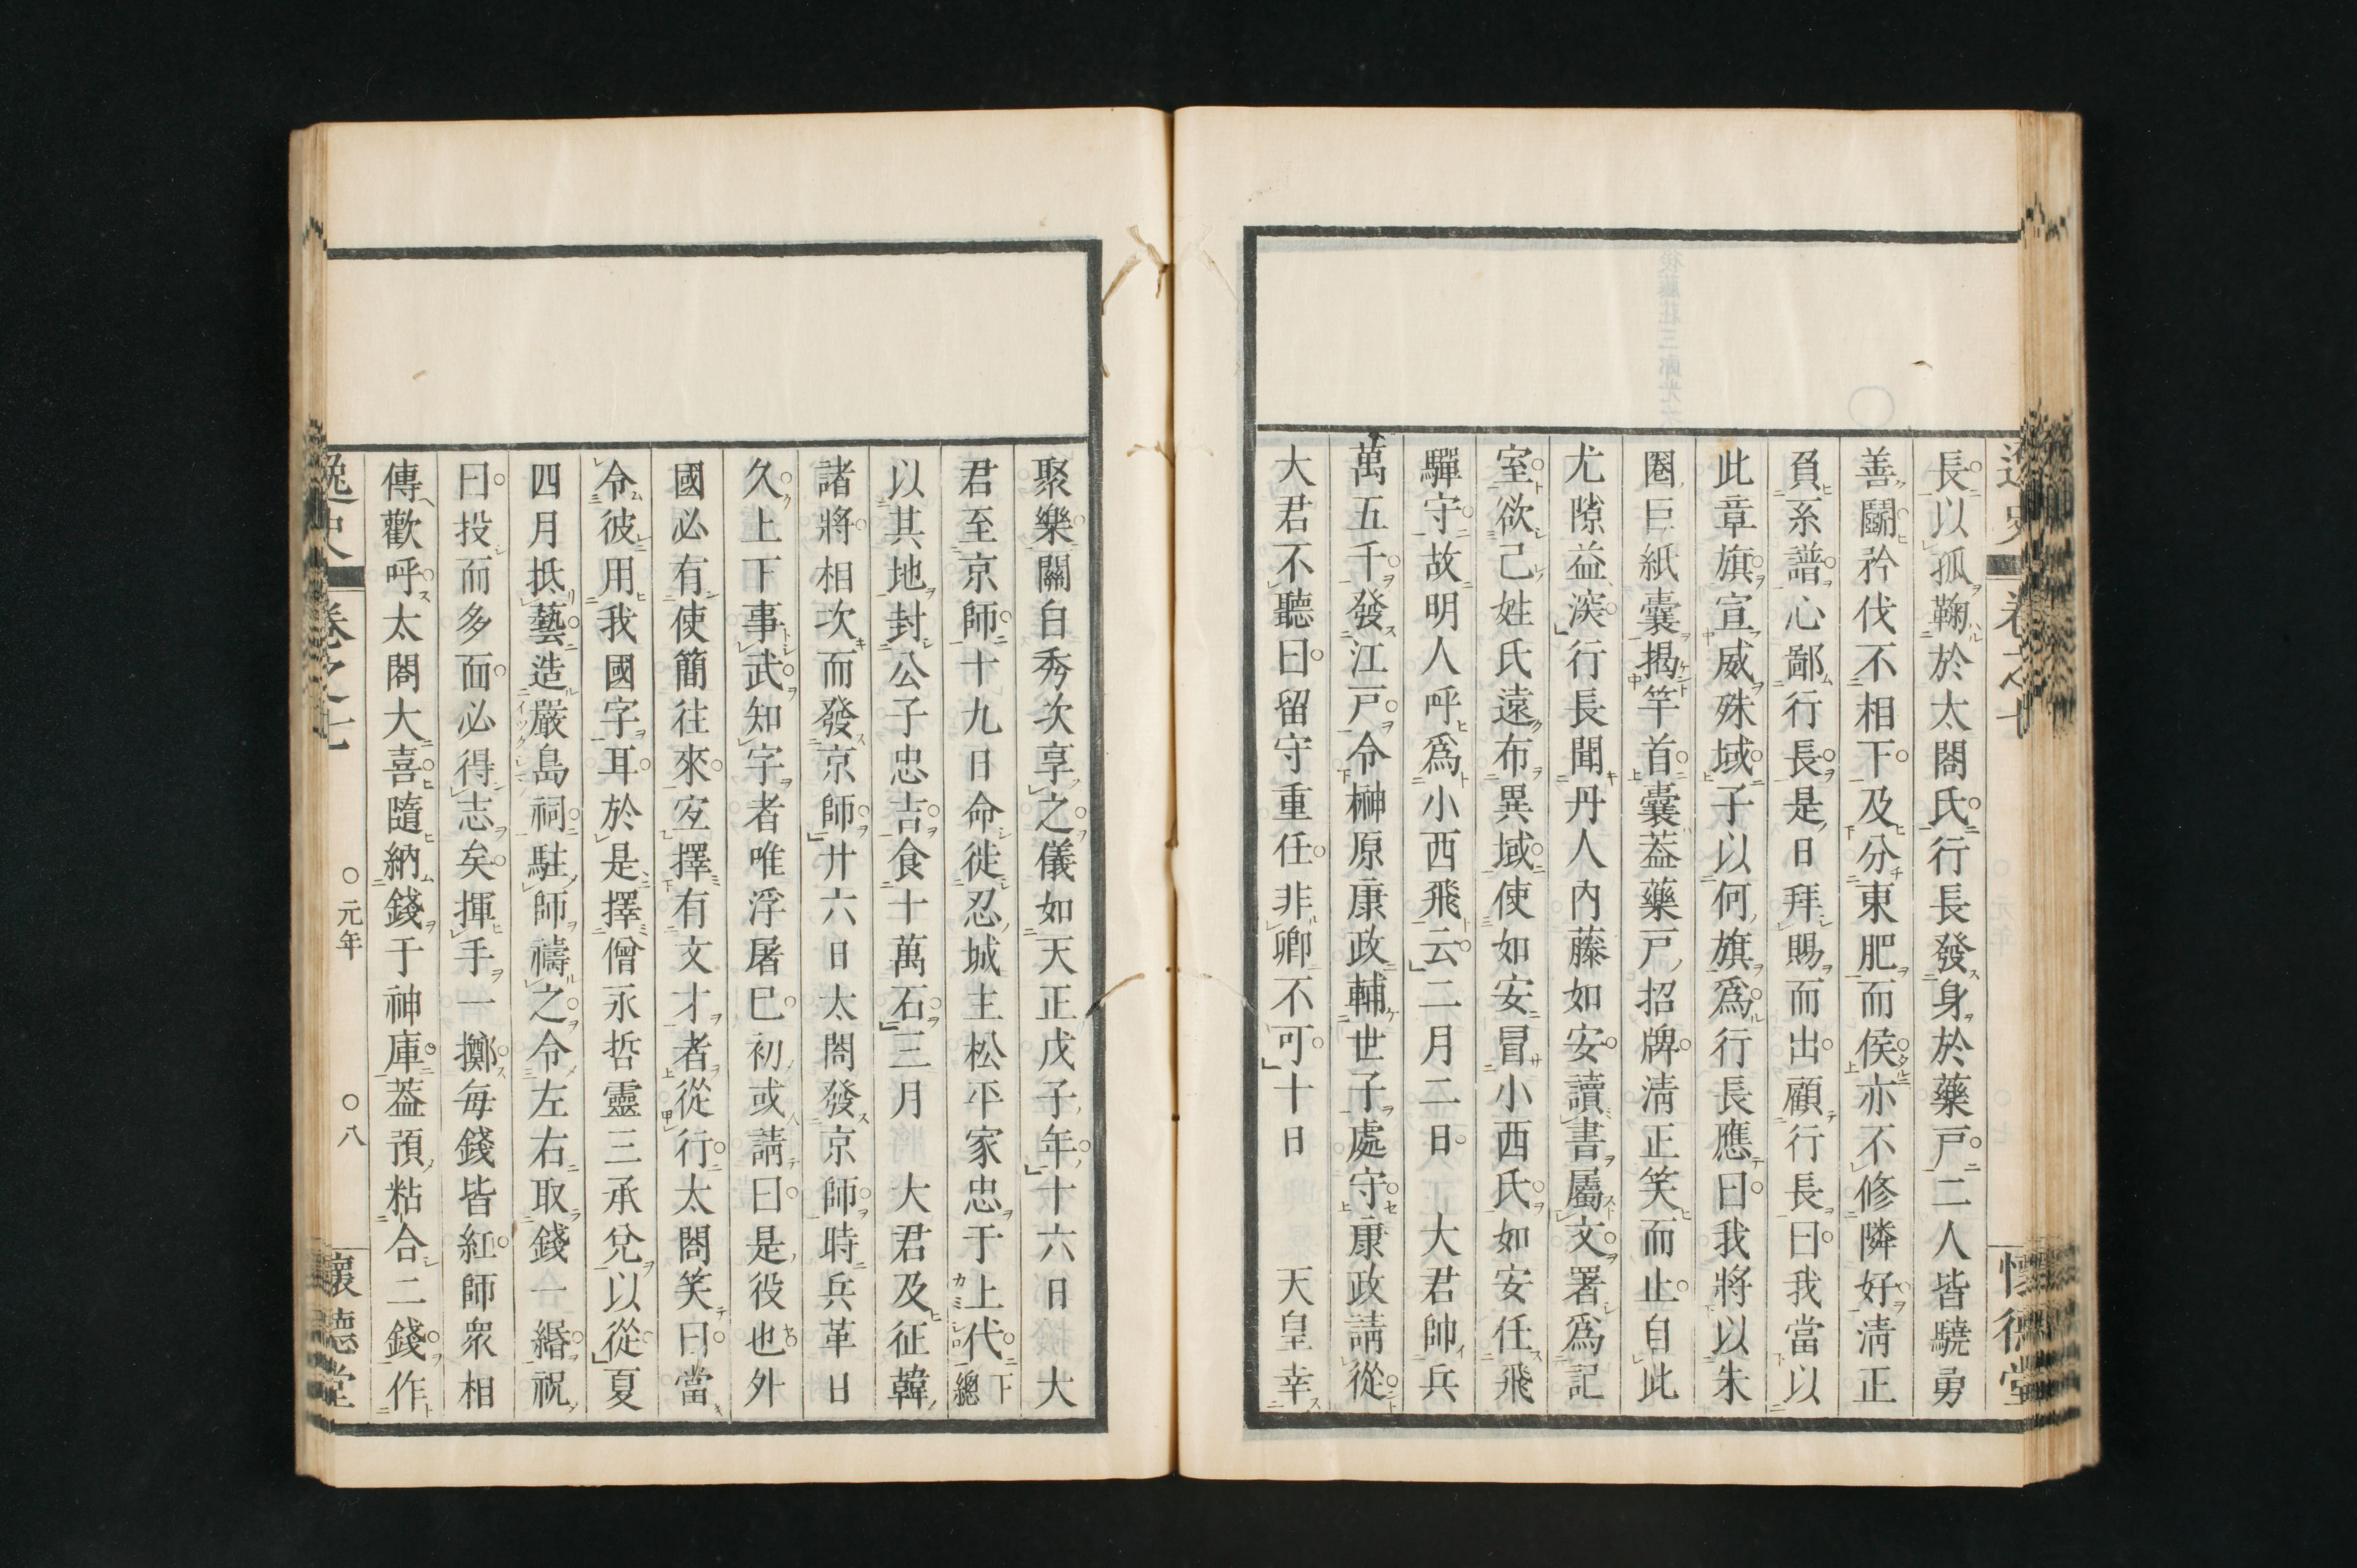 長以孤鞠於太閤氏行長發身於藥戸二人皆驍勇
善鬭矜伐不相下及分東肥而侯亦不修隣好清正
負系譜心鄙行長是日拜賜而出顧行長曰我當以
此章旗宣威殊域子以何旗爲行長應曰我將以朱
圏巨紙囊揭竿首囊葢藥戸招牌淸正笑而止自此
尤隙益深行長聞丹人内藤如安讀書屬文署爲記
室欲己姓氏遠布異域使如安冒小西氏如安任飛
驒守故明人呼爲小西飛云二月二日　大君帥兵
萬五千發江戸令榊原康政輔世子處守康政請從
大君不聽曰留守重任非卿不可十日　　天皇幸
聚樂關白秀次享之儀如天正戊子年十六日　大
君至京師十九日命徙忍城主松平家忠于上代下總
以其地封公子忠吉食十萬石三月　大君及征韓
諸將相次而發京師廿六日太閤發京師時兵革日
久上下事武知字者唯浮屠已初或請曰是役也外
國必有使簡往來宜擇有文才者從行太閤笑曰當
令彼用我國字耳於是擇僧永哲靈三承兌以從夏
四月抵藝造嚴島祠駐師禱之令左右取錢一緡祝
曰投而多面必得志矣揮手一擲每錢皆紅師衆相
傳歡呼太閤大喜隨納錢于神庫葢預粘合二錢作
逸史　卷之七　○元年　○八　懷德堂